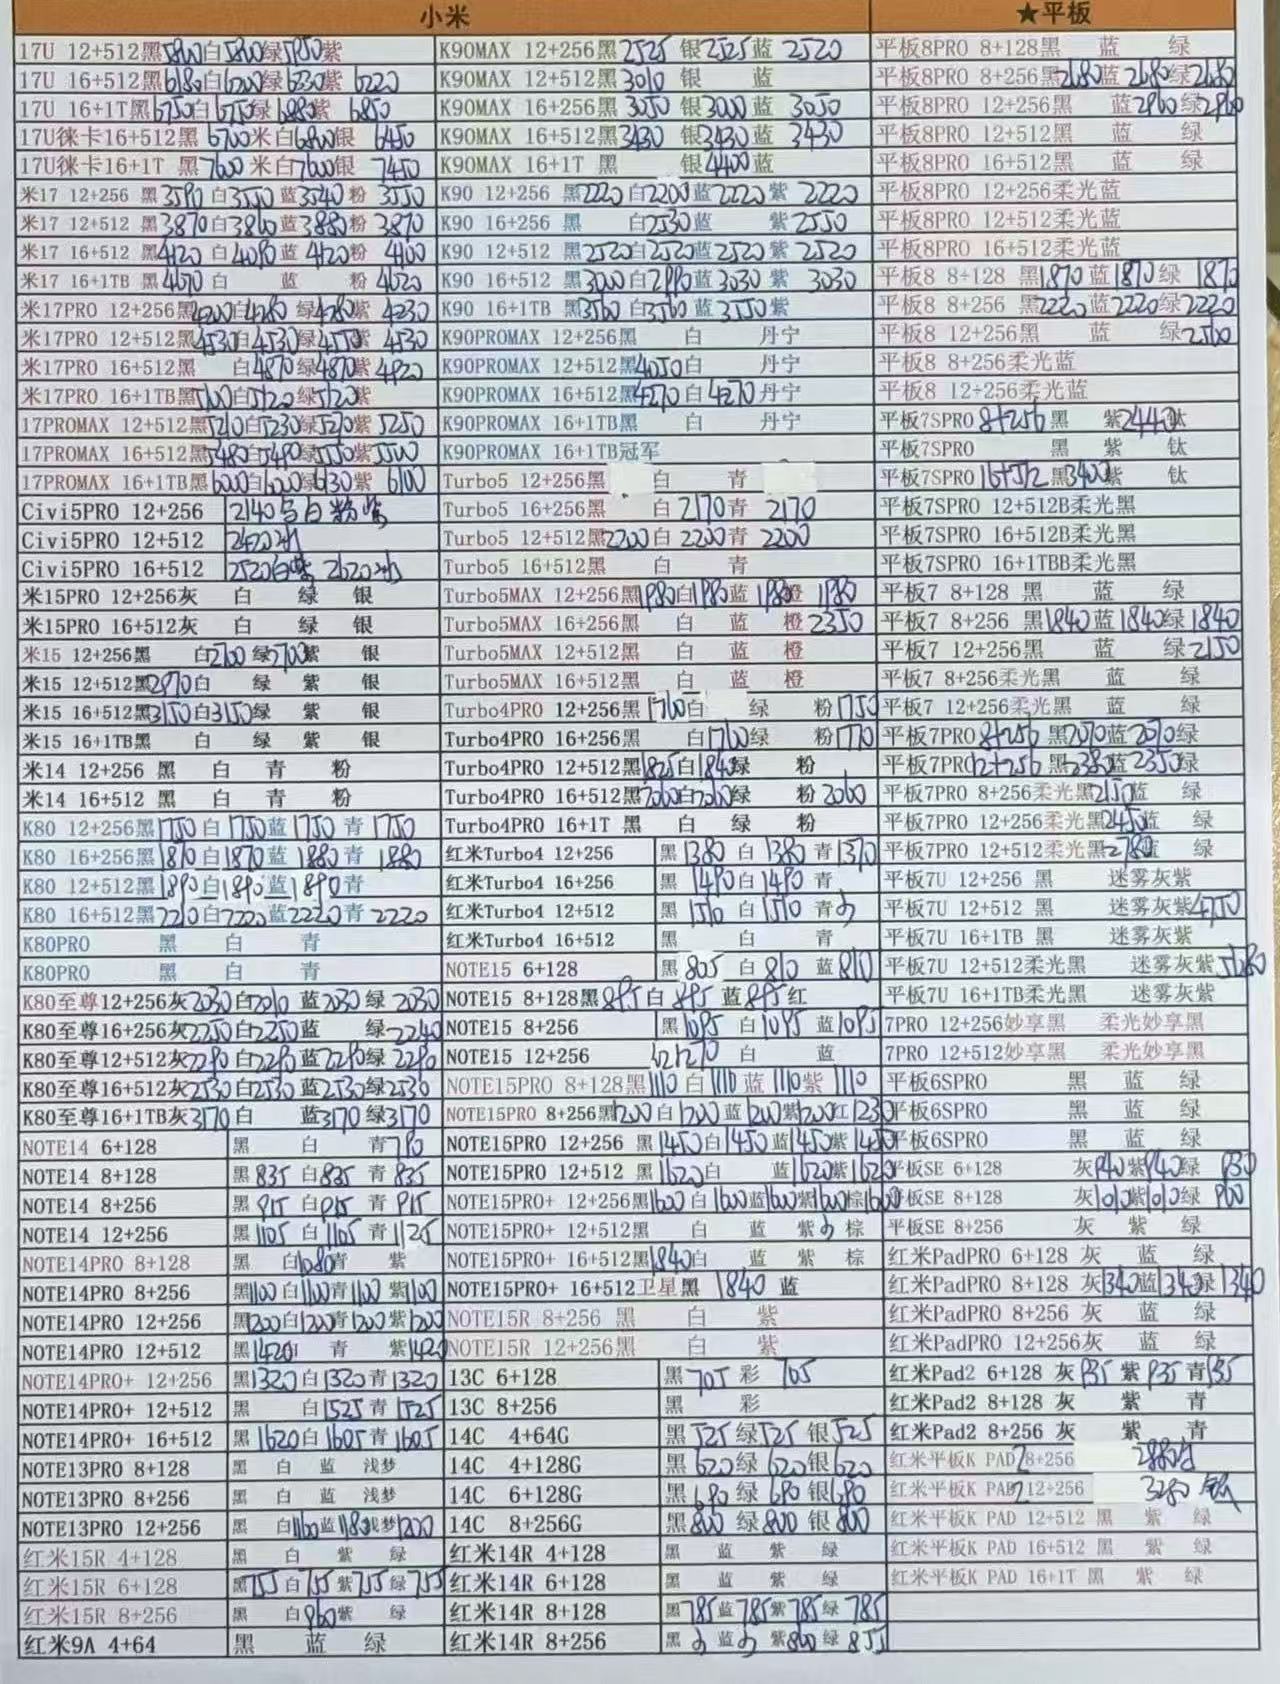 小米
17U 12+512黑5800白5800绿5950紫
17U 16+512黑6180白6200绿6330紫 6220
17U 16+1T黑6750白6750绿6880紫 6850
17U徕卡16+512黑 6700 米白6800银 6450
17U徕卡16+1T 黑7600 米白7600银 7450
米17 12+256 黑3590白3550蓝3540粉 3550
米17 12+512 黑3870白3860蓝3880粉 3870
米17 16+512 黑4120白4090蓝4120粉 4100
米17 16+1TB黑4670 白 蓝 粉 4020
米17PRO 12+256黑4200白4280 绿4280紫 4230
米17PRO 12+512黑4530白4530绿4550紫 4530
米17PRO 16+512黑 白4870绿4870紫 4920
米17PRO 16+1TB黑5100白5120绿5120紫
17PROMAX 12+512黑5210白5230绿5270紫 5250
17PROMAX 16+512黑5480白5490绿5550紫5500
17PROMAX 16+1TB黑6000白6000绿6130紫 6100
Civi5PRO 12+256 2140 白粉紫
Civi5PRO 12+512 2420冰
Civi5PRO 16+512 2520白紫 2620冰
米15PRO 12+256灰 白 绿 银
米15PRO 16+512灰 白 绿 银
米15 12+256黑 白2700绿2700紫 银
米15 12+512黑2970白 绿 紫 银
米15 16+512黑3150白3150绿 紫 银
米15 16+1TB黑 白 绿 紫 银
米14 12+256 黑 白 青 粉
米14 16+512 黑 白 青 粉
K80 12+256黑1750白1750蓝1750青 1750
K80 16+256黑1870白1870蓝1880青 1880
K80 12+512黑1890白1890蓝1890青
K80 16+512黑2210白2220蓝2220青 2220
K80PRO 黑 白 青
K80PRO 黑 白 青
K80至尊12+256灰2030白2010 蓝2030绿 2030
K80至尊16+256灰2250白2250蓝 绿2240
K80至尊12+512灰2290白2290蓝2290绿 2290
K80至尊16+512灰2530白2530蓝2530绿2530
K80至尊16+1TB灰3170白 蓝3170绿3170
NOTE14 6+128 黑 白 青790
NOTE14 8+128 黑835 白835 青 835
NOTE14 8+256 黑915 白915 青 915
NOTE14 12+256 黑1105 白1105 青1125
NOTE14PRO 8+128 黑 白1080青 紫
NOTE14PRO 8+256 黑1100白1100青1100紫1100
NOTE14PRO 12+256 黑1200白1200青1200紫1200
NOTE14PRO 12+512 黑1420白 青 紫1420
NOTE14PRO+ 12+256 黑1320白1320青1320
NOTE14PRO+ 12+512 黑 白1525青1525
NOTE14PRO+ 16+512 黑1620白1605青1605
NOTE13PRO 8+128 黑 白 蓝 浅梦
NOTE13PRO 8+256 黑 白 蓝 浅梦
NOTE13PRO 12+256 黑 白1160蓝1180浅梦1200
红米15R 4+128 黑 白 紫 绿
红米15R 6+128 黑755白755紫755绿755
红米15R 8+256 黑 白860紫 绿
红米9A 4+64 黑 蓝 绿
K90MAX 12+256黑2525 银2525蓝 2520
K90MAX 12+512黑3010 银 蓝
K90MAX 16+256黑 3050 银3000蓝 3050
K90MAX 16+512黑3430 银3430蓝 3430
K90MAX 16+1T 黑 银4400蓝
K90 12+256 黑2220白2200蓝2220紫 2220
K90 16+256 黑 白2530蓝 紫2550
K90 12+512 黑2520白2520蓝2520紫 2520
K90 16+512 黑3000白2990蓝3030紫 3030
K90 16+1TB 黑3560白3560蓝3550紫
K90PROMAX 12+256黑 白 丹宁
K90PROMAX 12+512黑4050白 丹宁
K90PROMAX 16+512黑4270白4270丹宁
K90PROMAX 16+1TB黑 白 丹宁
K90PROMAX 16+1TB冠军
Turbo5 12+256黑 白 青
Turbo5 16+256黑 白2170青 2170
Turbo5 12+512黑2200白2200青2200
Turbo5 16+512黑 白 青
Turbo5MAX 12+256黑1980白1980蓝1980橙 1980
Turbo5MAX 16+256黑 白 蓝 橙2350
Turbo5MAX 12+512黑 白 蓝 橙
Turbo5MAX 16+512黑 白 蓝 橙
Turbo4PRO 12+256黑1760白 绿 粉1750
Turbo4PRO 16+256黑 白1760绿 粉1770
Turbo4PRO 12+512黑1825白1840绿 粉
Turbo4PRO 16+512黑2060白2060绿 粉2060
Turbo4PRO 16+1T 黑 白 绿 粉
红米Turbo4 12+256 黑1380白1380青1370
红米Turbo4 16+256 黑1490白1490青
红米Turbo4 12+512 黑1510白1510青
红米Turbo4 16+512 黑 白 青
NOTE15 6+128 黑805 白810 蓝810
NOTE15 8+128黑895白 895 蓝895红
NOTE15 8+256 黑1095 白1095 蓝1095
NOTE15 12+256 红1270 白 蓝
NOTE15PRO 8+128黑1110白1110蓝1110紫1110
NOTE15PRO 8+256黑1200白1200蓝1200紫1200红1230
NOTE15PRO 12+256 黑1450白1450蓝1450紫1450
NOTE15PRO 12+512 黑1620白 蓝1620紫1620
NOTE15PRO+ 12+256黑1600白1600蓝1600紫1600棕1600
NOTE15PRO+ 12+512黑 白 蓝 紫 棕
NOTE15PRO+ 16+512黑1840白 蓝 紫 棕
NOTE15PRO+ 16+512卫星黑 1840 蓝
NOTE15R 8+256 黑 白 紫
NOTE15R 12+256黑 白 紫
13C 6+128 黑705彩 705
13C 8+256 黑 彩
14C 4+64G 黑525绿525银525
14C 4+128G 黑620绿620银620
14C 6+128G 黑690绿690银690
14C 8+256G 黑800绿800银800
红米14R 4+128 黑 蓝 紫 绿
红米14R 6+128 黑 蓝 紫 绿
红米14R 8+128 黑785蓝785紫785绿785
红米14R 8+256 黑 蓝 紫860绿855
★平板
平板8PRO 8+128黑 蓝 绿
平板8PRO 8+256黑2680蓝2680绿2680
平板8PRO 12+256黑 蓝2960绿2960
平板8PRO 12+512黑 蓝 绿
平板8PRO 16+512黑 蓝 绿
平板8PRO 12+256柔光蓝
平板8PRO 12+512柔光蓝
平板8PRO 16+512柔光蓝
平板8 8+128 黑1870蓝1870绿 1870
平板8 8+256 黑2220蓝2220绿2220
平板8 12+256黑 蓝 绿2560
平板8 8+256柔光蓝
平板8 12+256柔光蓝
平板7SPRO 8+256黑 紫2440钛
平板7SPRO 黑 紫 钛
平板7SPRO 16+512黑3400紫 钛
平板7SPRO 12+512B柔光黑
平板7SPRO 16+512B柔光黑
平板7SPRO 16+1TBB柔光黑
平板7 8+128 黑 蓝 绿
平板7 8+256 黑1840蓝1840绿1840
平板7 12+256黑 蓝 绿2150
平板7 8+256柔光黑 蓝 绿
平板7 12+256柔光黑 蓝 绿
平板7PRO 8+256 黑2070蓝2070绿
平板7PRO 12+256 黑2380蓝2350绿
平板7PRO 8+256柔光黑2150蓝 绿
平板7PRO 12+256柔光黑2450蓝 绿
平板7PRO 12+512柔光黑2780蓝 绿
平板7U 12+256 黑 迷雾灰紫
平板7U 12+512 黑 迷雾灰紫4750
平板7U 16+1TB 黑 迷雾灰紫
平板7U 12+512柔光黑 迷雾灰紫5080
平板7U 16+1TB柔光黑 迷雾灰紫
7PRO 12+256妙享黑 柔光妙享黑
7PRO 12+512妙享黑 柔光妙享黑
平板6SPRO 黑 蓝 绿
平板6SPRO 黑 蓝 绿
平板6SPRO 黑 蓝 绿
平板SE 6+128 灰940紫940绿 930
平板SE 8+128 灰1010紫1010绿 960
平板SE 8+256 灰 紫 绿
红米PadPRO 6+128 灰 蓝 绿
红米PadPRO 8+128 灰1340蓝1340绿1340
红米PadPRO 8+256灰 蓝 绿
红米PadPRO 12+256灰 蓝 绿
红米Pad2 6+128 灰935 紫935青935
红米Pad2 8+128 灰 紫 青
红米Pad2 8+256 灰 紫 青
红米平板K PAD2 8+256 2880
红米平板K PAD2 12+256 3280 银
红米平板K PAD 12+512 黑 紫 绿
红米平板K PAD 16+512 黑 紫 绿
红米平板K PAD 16+1T 黑 紫 绿